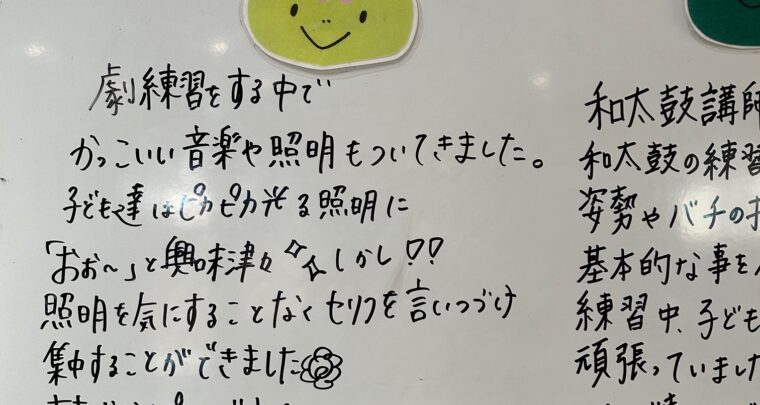 劇練習をする中で
かっこいい音楽や照明もついてきました。
子ども達はピカピカ光る照明に
「おぉ〜」と興味津々しかし!!
照明を気にすることなくセリフを言いつづけ
集中することができました
和太鼓講師
和太鼓の練習
姿勢やバチの
基本的な事を
練習中、子ども
頑張っていました